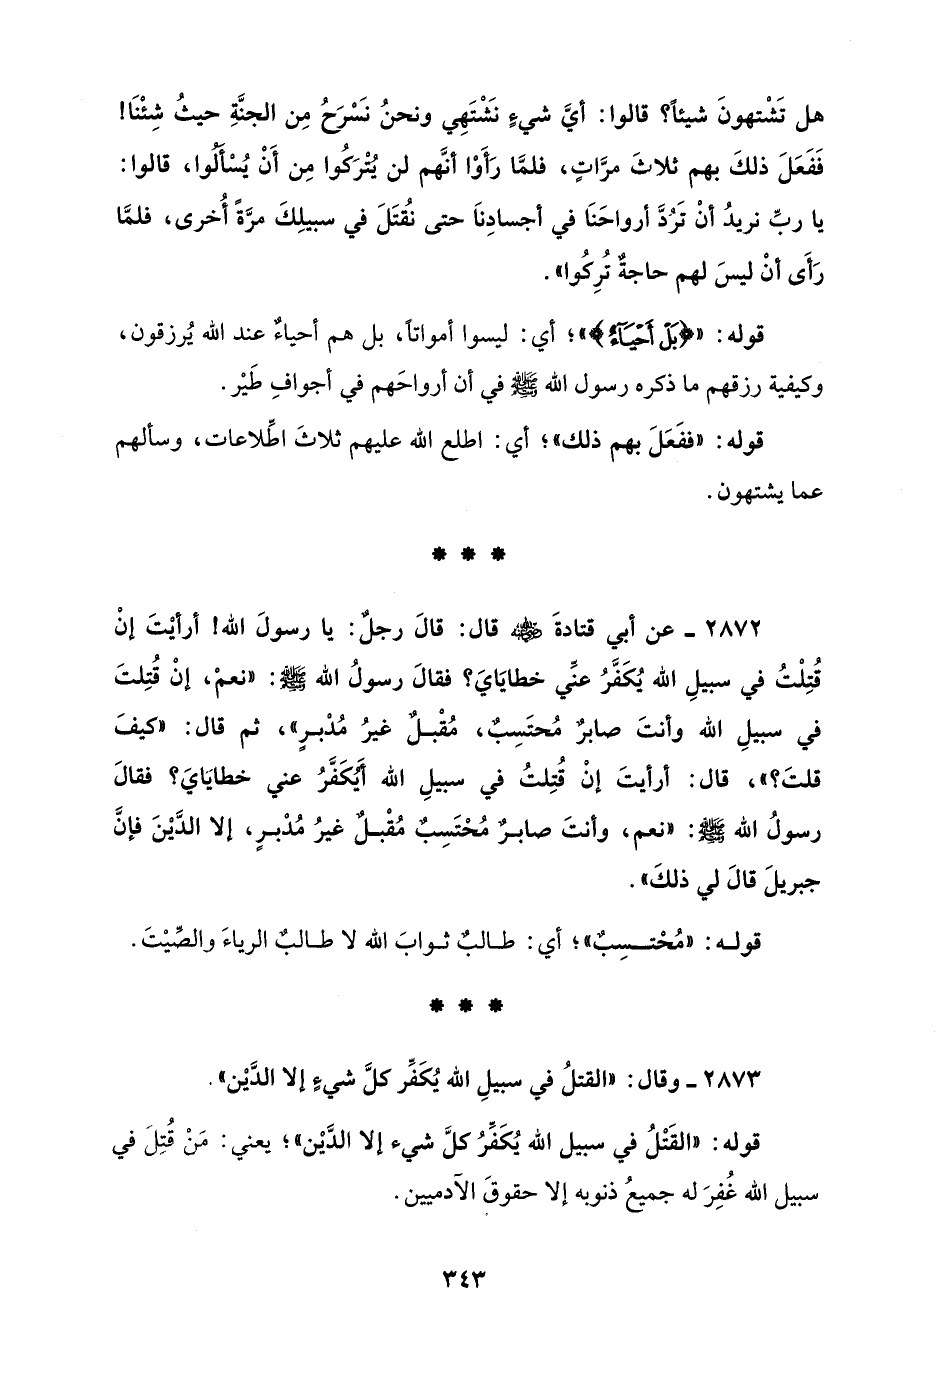 هل تَشْتهونَ شيئاً؟ قالوا: أيَّ شيءٍ نَشْتَهِي ونحنُ نَسْرَحُ مِن الجنَّةِ حيثُ شِئْنَا!
فَفَعَلَ ذلكَ بهم ثلاثَ مرَّاتٍ، فلمَّا رَأَوْا أنَّهم لن يُتْرَكُوا مِن أَنْ يُسْأَلُوا، قالوا:
يا ربِّ نريدُ أنْ تَرُدَّ أرواحَنَا في أجسادِنَا حتى نُقتَلَ في سبيلِكَ مرَّةً أُخرى، فلمَّا
رَأَى أنْ ليسَ لهم حاجةٌ تُرِكُوا».
قوله: «﴿بَلْ أَحْيَآءٌ﴾»؛ أي: ليسوا أمواتاً، بل هم أحياءٌ عند الله يُرزقون،
وكيفية رزقهم ما ذكره رسول الله ﷺ في أن أرواحَهم في أجوافِ طَيْر.
قوله: «ففَعَلَ بهم ذلك»؛ أي: اطلع الله عليهم ثلاثَ اطِّلاعات، وسألهم
عما يشتهون.
* * *
٢٨٧٢ ـ عن أبي قتادةَ ﵁ قال: قالَ رجلٌ: يا رسولَ الله! أرأيْتَ إنْ
قُتِلْتُ في سبيلِ الله يُكَفَّرُ عنِّي خطايَايَ؟ فقالَ رسولُ الله ﷺ: «نعمْ، إنْ قُتِلتَ
في سبيلِ الله وأنتَ صابرٌ مُحتَسِبٌ، مُقْبلٌ غيرُ مُدْبرٍ»، ثم قال: «كيفَ
قلتَ؟»، قال: أرأيتَ إنْ قُتِلتُ في سبيلِ الله أَيُكَفَّرُ عني خطايَايَ؟ فقالَ
رسولُ الله ﷺ: «نعم، وأنتَ صابرٌ مُحْتَسِبٌ مُقْبلٌ غيرُ مُدْبرٍ، إلا الدَّيْنَ فإنَّ
جبريلَ قالَ لي ذلكَ».
قوله: «مُحْتسِبٌ»؛ أي: طالبٌ ثوابَ الله لا طالبٌ الرياءَ والصِّيْتَ.
* * *
٢٨٧٣ ـ وقال: «القتلُ في سبيلِ الله يُكَفِّر كلَّ شيءٍ إلا الدَّيْن».
قوله: «القَتْلُ في سبيل الله يُكَفِّرُ كلَّ شيء إلا الدَّيْن»؛ يعني: مَنْ قُتِلَ في
سبيل الله غُفِرَ له جميعُ ذنوبه إلا حقوقَ الآدميين.
٣٤٣